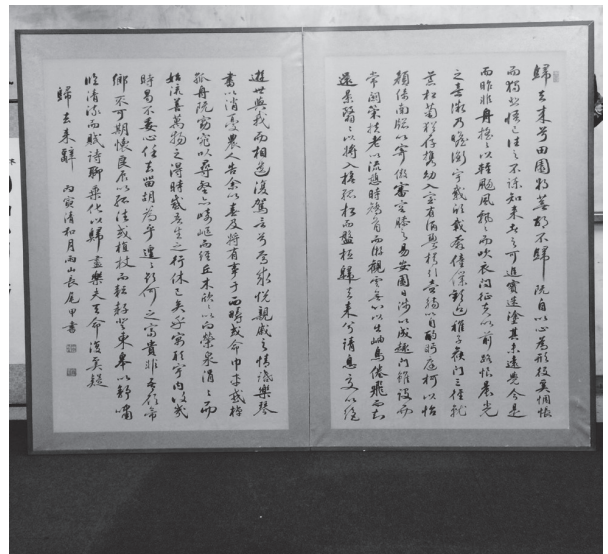 歸去來兮田園將蕪胡不歸既自以心為形役奚惆悵
而獨悲悟已往之不諫知來者之可追實迷塗其未遠覺今是
而昨非舟搖々以輕颺風飄々而吹衣問征夫以前路恨晨光
之熹微乃瞻衡宇載欣載奔僮僕歡迎稚子候門三徑就
荒松菊猶存攜幼入室有酒盈樽引壺觴以自酌眄庭柯以怡
顏倚南牕以寄傲審容膝之易安園日涉以成趣門雖設而
常關策扶老以流憩時矯首而遐觀雲無心以出岫鳥倦飛而知
還景翳々以將入撫孤松而盤桓歸去來兮請息交以絕
遊世與我而相遺復駕言兮焉求悅親戚之情話樂琴
書以消憂農人告余以春及將有事于西疇或命巾車或棹
孤舟既窈窕以尋壑亦崎嶇而經丘木欣々以向榮泉涓々而
始流善萬物之得時感吾生之行休已矣乎寓形宇內復幾
時曷不委心任去留胡為乎遑々欲何之富貴非吾願帝
鄉不可期懷良辰以孤往或植杖而耘耔登東皋以舒嘯
臨清流而賦詩聊乘化以歸盡樂夫天命復奚疑
歸去來辭 丙寅清和月雨山長尾甲書